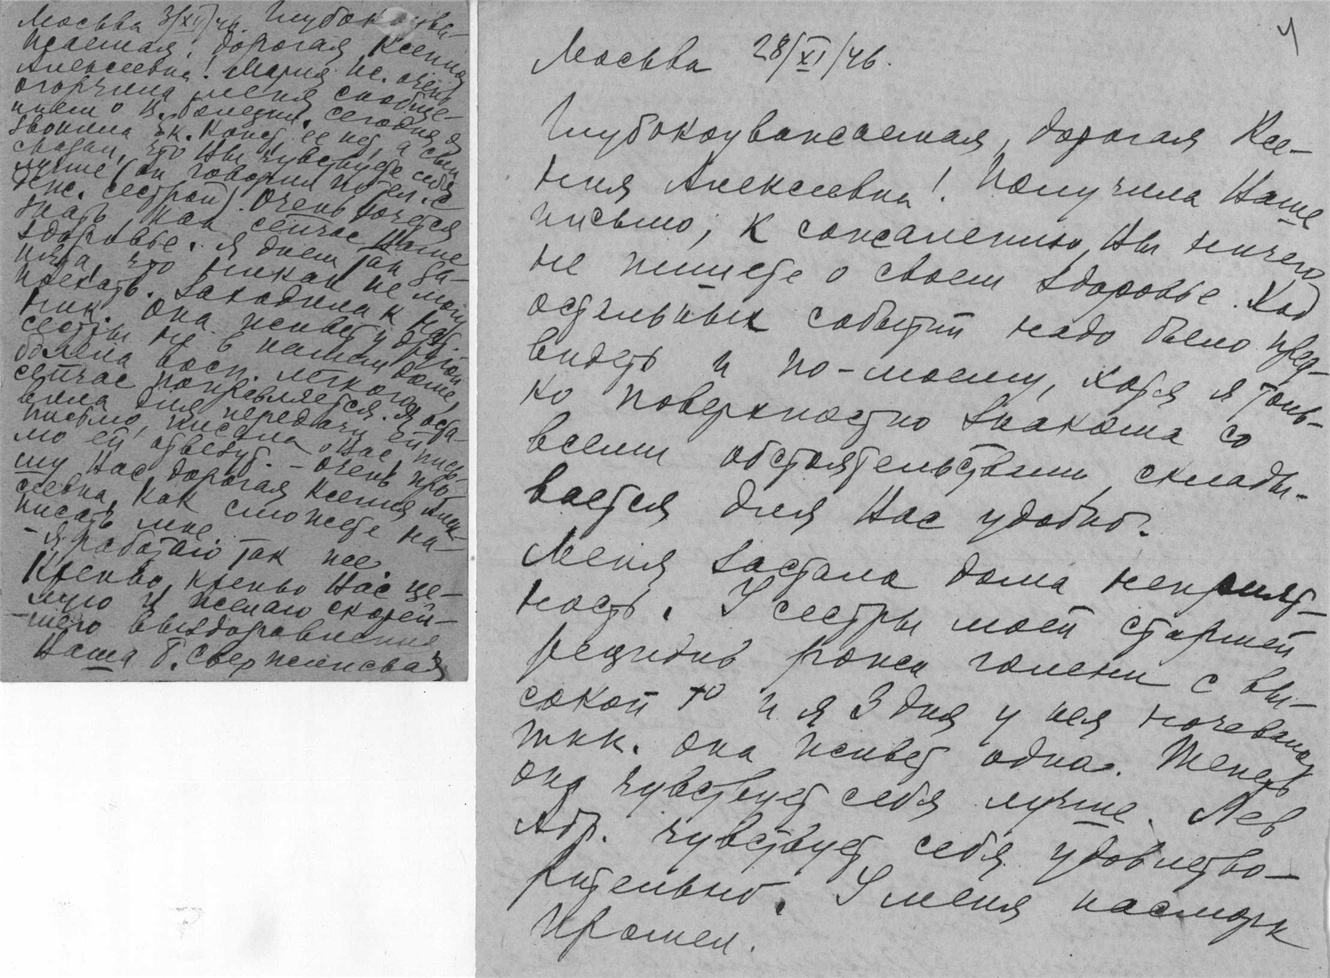 Москва 3/XII/46. Глубокоува-
жаемая, дорогая Ксения
Алексеевна! Мария Ис. очень
огорчила меня сообще-
нием о В. болезни. Сегодня я
звонила Ник. Конст. ее нет, а сын
сказал, что Вы чувствуете себя
лучше (он говорил по тел. с
сестрой). Очень хочется
знать, как сейчас Ваше
здоровье. Я днем так за-
нята, что никак не могу
поехать. Заходила к
Она живет у другой
сестры не в нашем доме,
болела восп. легкого,
сейчас поправляется. Я оста-
вила для передачи ей
письмо, писала о Вас, пись-
мо ей отвезут. – Очень про-
шу Вас дорогая Ксения Алек-
сеевна, как сможете на-
писать мне.
– Я работаю так же.
Крепко, крепко Вас це-
лую и желаю скорей-
шего выздоровления
Ваша Б. Сверженская
4
Москва 28/XI/46.
Глубокоуважаемая, дорогая Ксе-
ния Алексеевна! Получила Ваше
письмо, к сожалению, Вы ничего
не пишете о своем здоровье. Ход
остальных событий надо было пред-
видеть и по-моему, хотя я толь-
ко поверхностно знакома со
всеми обстоятельствами, склады-
вается для Вас удобно.
Меня застала дома неприят-
ность. У сестры моей старшей
рецидив рожи голени с вы-
сокой то и я 3 дня у нея ночевала,
т.к. она живет одна. Теперь
она чувствует себя лучше. Лев
Абр. чувствует себя удовлетво-
рительно. У меня насморк
прошел.